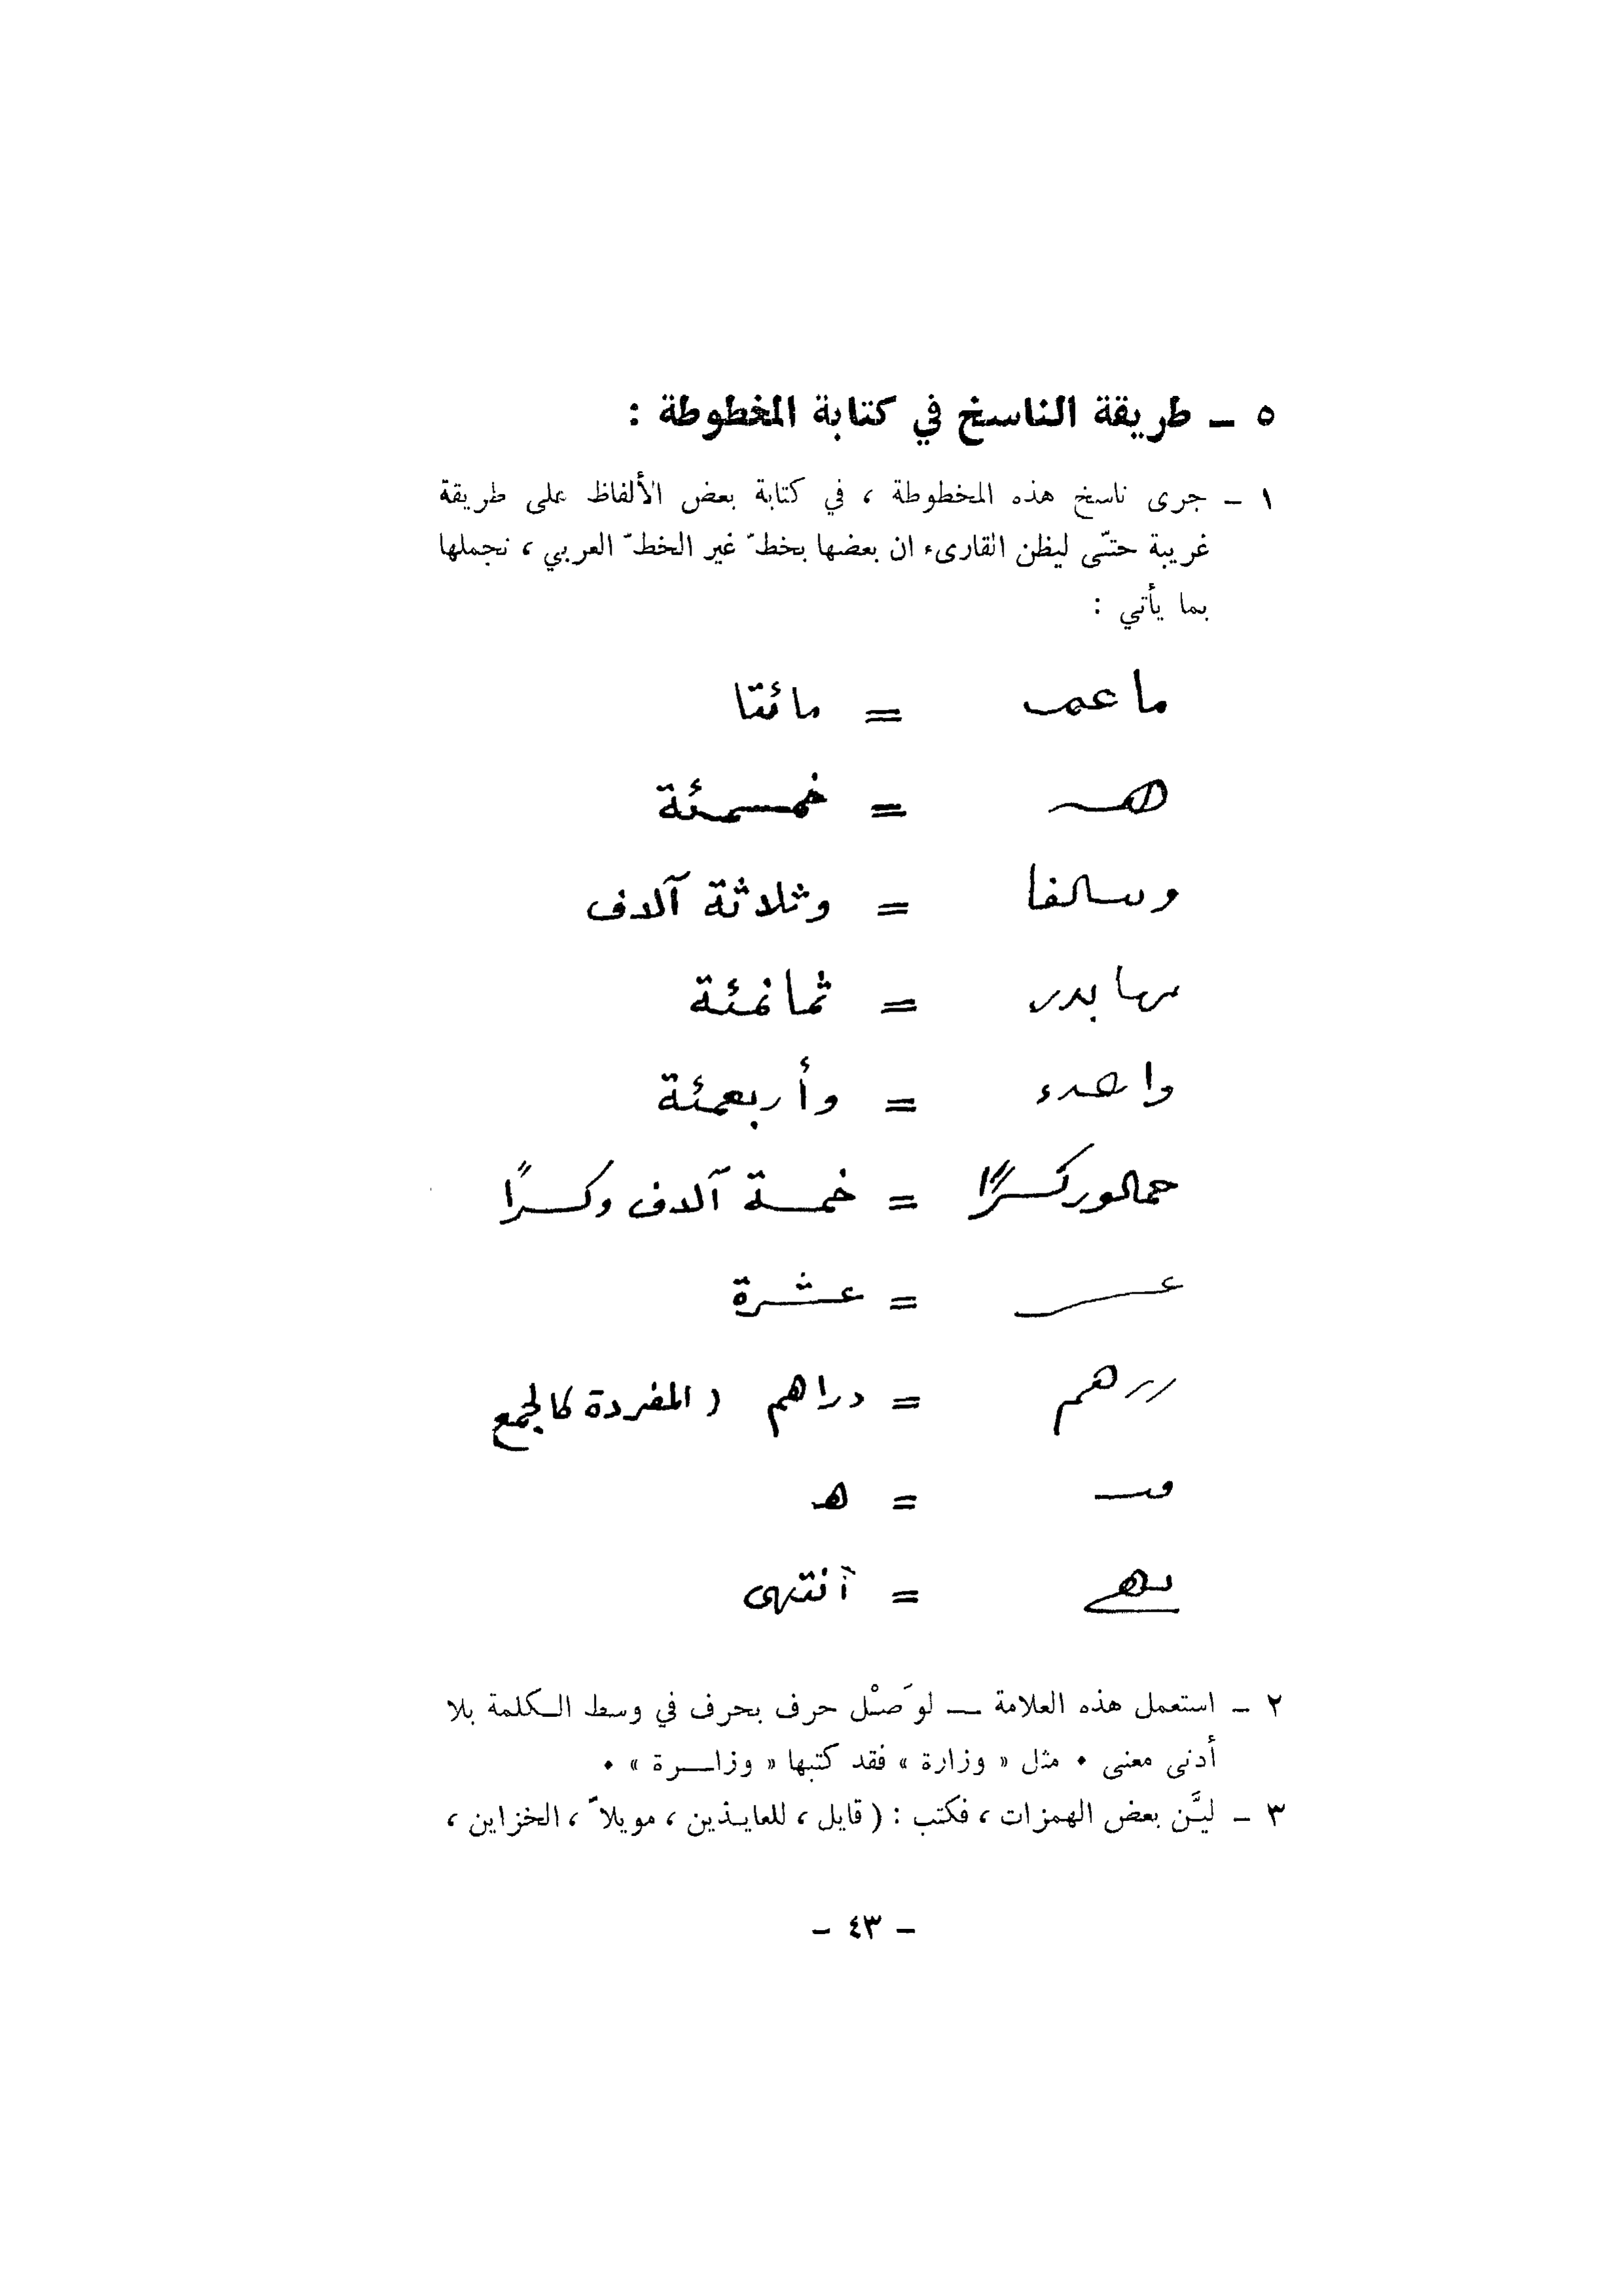 ٥ ــ طريقة الناسخ في كتابة المخطوطة :
١ ــ جرى ناسخ هذه المخطوطة ، في كتابة بعض الألفاظ على طريقة
غريبة حتّى ليظن القارىء ان بعضها بخطّ غير الخطّ العربي ، نجملها
بما يأتي :
= مائتا
= خمسمئة
= وثلاثة آلاف
= ثمانمئة
= وأربعمئة
= خمسة آلاف وكسرًا
= عشرة
= دراهم ( المفردة كالجمع
= هـ
= آنتهى
٢ ــ استعمل هذه العلامة ـــ لوَصْل حرف بحرف في وسط الـكلمة بلا
أدنى معنى . مثل « وزارة » فقد كتبها « وزاـــرة » .
٣ ــ ليَّن بعض الهمزات ، فكتب : ( قايل ، للعايـذين ، مويلاً ، الخزاين ،
ــ ٤٣ ــ